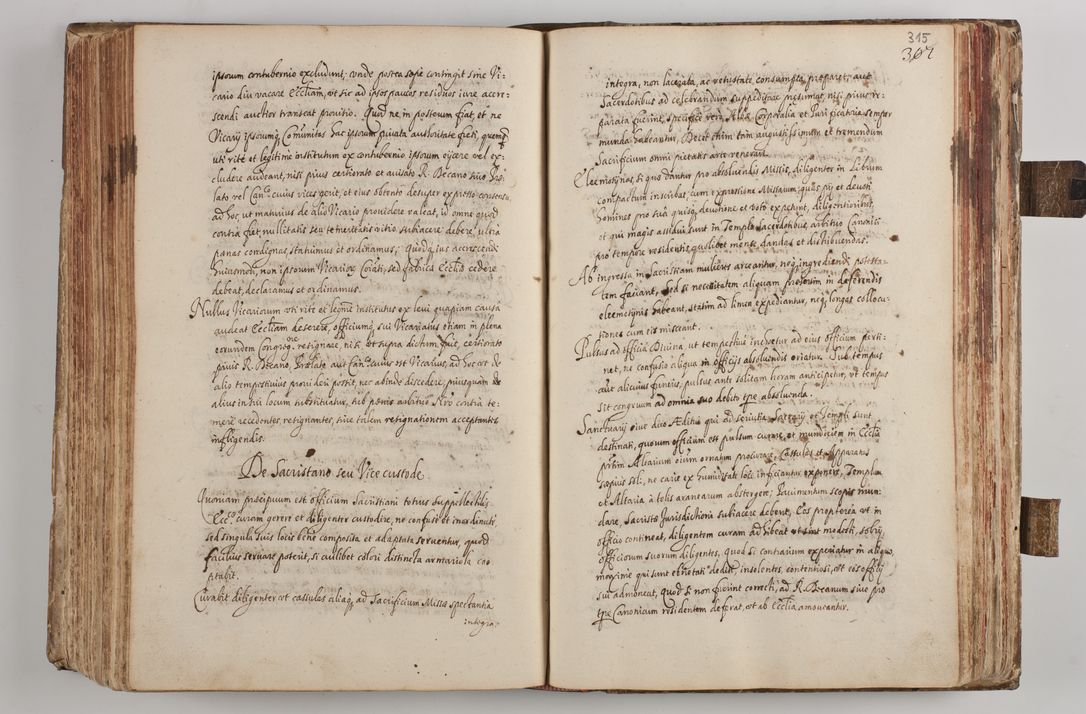 ipsorum contubernio excludunt; unde postea sæpe contingit sine Vi:
cario diu vacare Eccliam, ut sic ad ipsos paucos residuos iure accre:
scendi auctior transeat provitio. Quod ne in posterum fiat, et ne
Vicarij ipsorumq Comunitas hac ipsorum privata authoritate freti, quemq
uti rite et legitime institutum ex contubernio ipsorum eijcere vel ex:
cludere audeant, nisi prius certiorato et avisato R. Decano sive Præ
lato vel Canco cuius vices gerit, et eius obtento desuper expresso consensu,
ad hoc ut maturius de alio Vicario providere valeat, id omne quod
contra fiet, nullitatis seu temeritatis vitio subiacere debere, ultra
pænas condignas, statuimus et ordinamus; Quodq ius accrescendi
huiusmodi, non ipsorum Vicarior Coitati, sed fabricæ Eccliæ cedere
debeat, declaramus et ordinamus.
Nullus Vicariorum uti rite et legitime institutus ex levi quapiam causa
audeat Eccliam deserere, officiumq sui Vicariatus etiam in plena
eorundem Congregne resignare, nisi, ut supra dictum fuit, certiorato
prius R. Decano, Prælato aut Canco cuius est Vicarius, ad hoc ut de
alio tempestivius provideri possit, nec abinde discedere, priusquam
alius in sui locum substituatur, sub pænis arbitrio Nro contra te:
mere recedentes resignantes, sive talem resignationem acceptantes
infligendis.
De Sacristano seu Vice custode
Quoniam præcipuum est officium Sacristiani totius suppellectilis
Eccæ curam gerere et diligenter custodire, ne confuse et inordinate
sed singula suis locis bene composita et adaptata serventur, quod
facilius servare poterit, si cuilibet calori distincta armariola coo
ptabit.
Curabit diligenter ut cassulas aliaq ad Sacrificium Missæ spectantia
integra,
315
367
integra, non lacerata, ac vetustate consumpta præparet; aut
Sacerdotibus ad celebrandum suppeditare præsumat, nisi prius re:
parata fuerint, specifice vero Albæ Corporalia et Purificatoria semper
munda habeantur, Decet enim tam augustissimum et tremendum
Sacrificium omni pietatis arce venerari.
Eleemosynas, si quæ dantur pro absolvendis Missis, diligenter in Librum
compactum inscribat, cum expressione Missarum, quas pij et devoti
homines pro sua quisq devotione et voto expetunt, diligentioribus
et qui magis assidui sunt in Templo Sacerdotibus, arbitrio Canonici
pro tempore residentis, quolibet mense dandas et distribuendas.
Ab ingressu in Sacristiam mulieres arceantur, neq ingrediendi potesta:
tem faciant, sed si necessitatem aliquam præsertim in deferendis
eleemosynis habeant, statim ad limen expediantur, neq longas collocu:
tiones cum eis misceant.
Pulsus ad officia Divina, ut tempestive inchoetur ad eius officium perti:
net, ne confusio aliqua in officijs absolvendis oriatur. Sub tempus
aut alicuius funeris, pulsus ante solitam horam anticipetur, ut tempus
sit congruum ad omnia suo debito tpre absolvenda.
Sanctuarij sive duo Æditui qui ad servitia Sacrarij et Templi sunt
destinati, quorum officium est pulsum curare, et munditiem in Ecclia
prtim Altarium oium ornatum procurare. Cassulas et Apparatus
sæpius soli, ne carie ex humiditate loci inficiantur exponere, Templum
et Altaria à telis aranearum abstergere, Pavimentum scopis mun:
dare, Sacristæ Jurisdictioni subiacere debent, Eos propterea ut in
officio contineat, diligentem curam adhibeat ut sint modesti, sobrij
officiorum suorum diligentes, Quod si contrarium experiatur in aliquo,
maxime qui sunt ebrietati dediti, insolentes, contentiosi, ut eos officij
sui admoneat, quod si non fuerint correcti, ad R. Decanum sive pro
tpre Canonicum residentem deferat, ut ab Ecclia amoveantur.